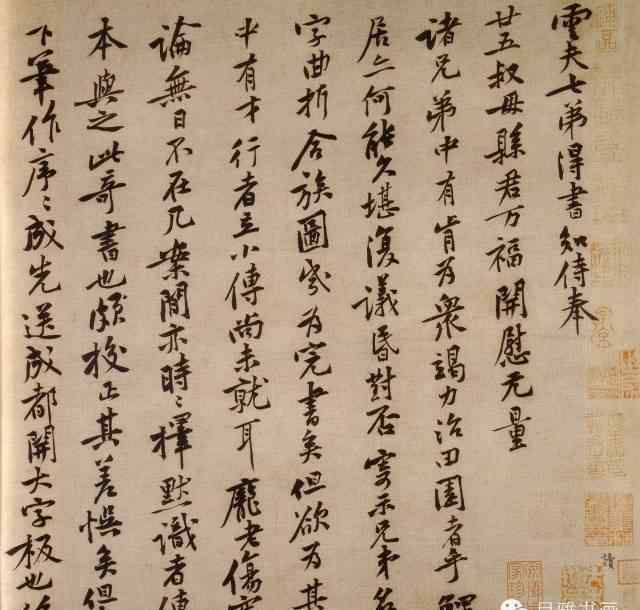 雲夫七弟得書知侍奉
廿五叔母縣君万福開慰无量
諸兄弟中有肯為衆竭力治田園者乎鰥
居亦何能久堪復議昏對否寄示兄弟名
字曲折合族圖㡬為完書矣但欲為其
中有才行者立小傳尚未就耳龐老傷寒
論無日不在几案間亦時〻擇默識者傳
本與之此奇書也頗校正其差悮矣但
下筆作序〻成先送成都開大字板也
讀